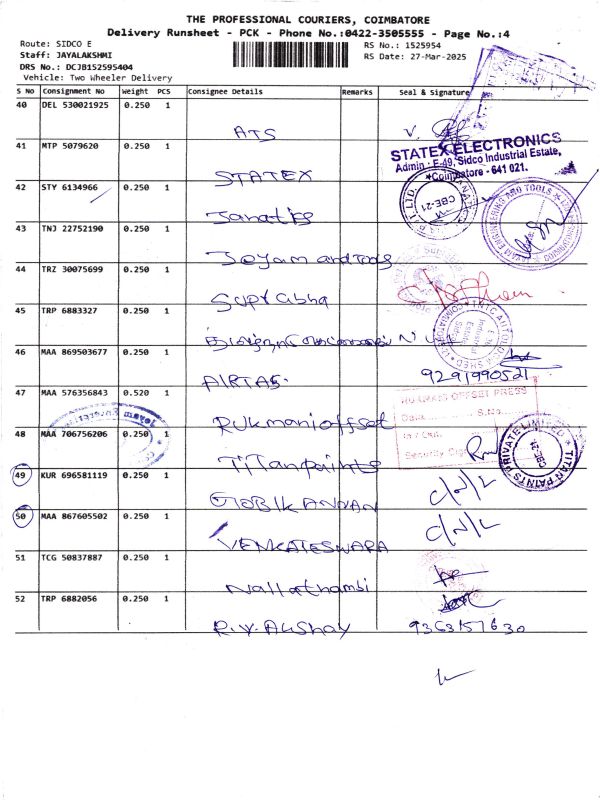 THE PROFESSIONAL COURIERS, COIMBATORE
Delivery Runsheet - PCK - Phone No.:0422-3505555 - Page No.:4
Route: SIDCO E
RS No.: 1525954
Staff: JAYALAKSHMI
RS Date: 27-Mar-2025
DRS No.: DCJB152595404
Vehicle: Two Wheeler Delivery
S No Consignment No Weight PCS Consignee Details Remarks Seal & Signature
40 DEL 530021925 0.250 1
ATS
41 MTP 5079620 0.250 1
STATEX ELECTRONICS
Admin : E-49, Sidco Industrial Estate,
Coimbatore - 641 021.
STATEX
42 STY 6134966 0.250 1
CBE-21
Janatics
43 TNJ 22752190 0.250 1
Jeyam and Tools
44 TRZ 30075699 0.250 1
Suprabha
45 TRP 6883327 0.250 1
46 MAA 869503677 0.250 1
AIRTAS.
9291990521
47 MAA 576356843 0.520 1
RUKMANI OFFSET PRESS
Date
S.No.
Security Sign
Rukmani offset
48 MAA 706756206 0.250 1
TITAN PAINTS PRIVATE LIMITED
CBE-21
Titan paints
49 KUR 696581119 0.250 1
GOBIKANNAN
50 MAA 867605502 0.250 1
VENKATESWARA
51 TCG 50837887 0.250 1
Nallathambi
52 TRP 6882056 0.250 1
R.V. Akshay
9363157630